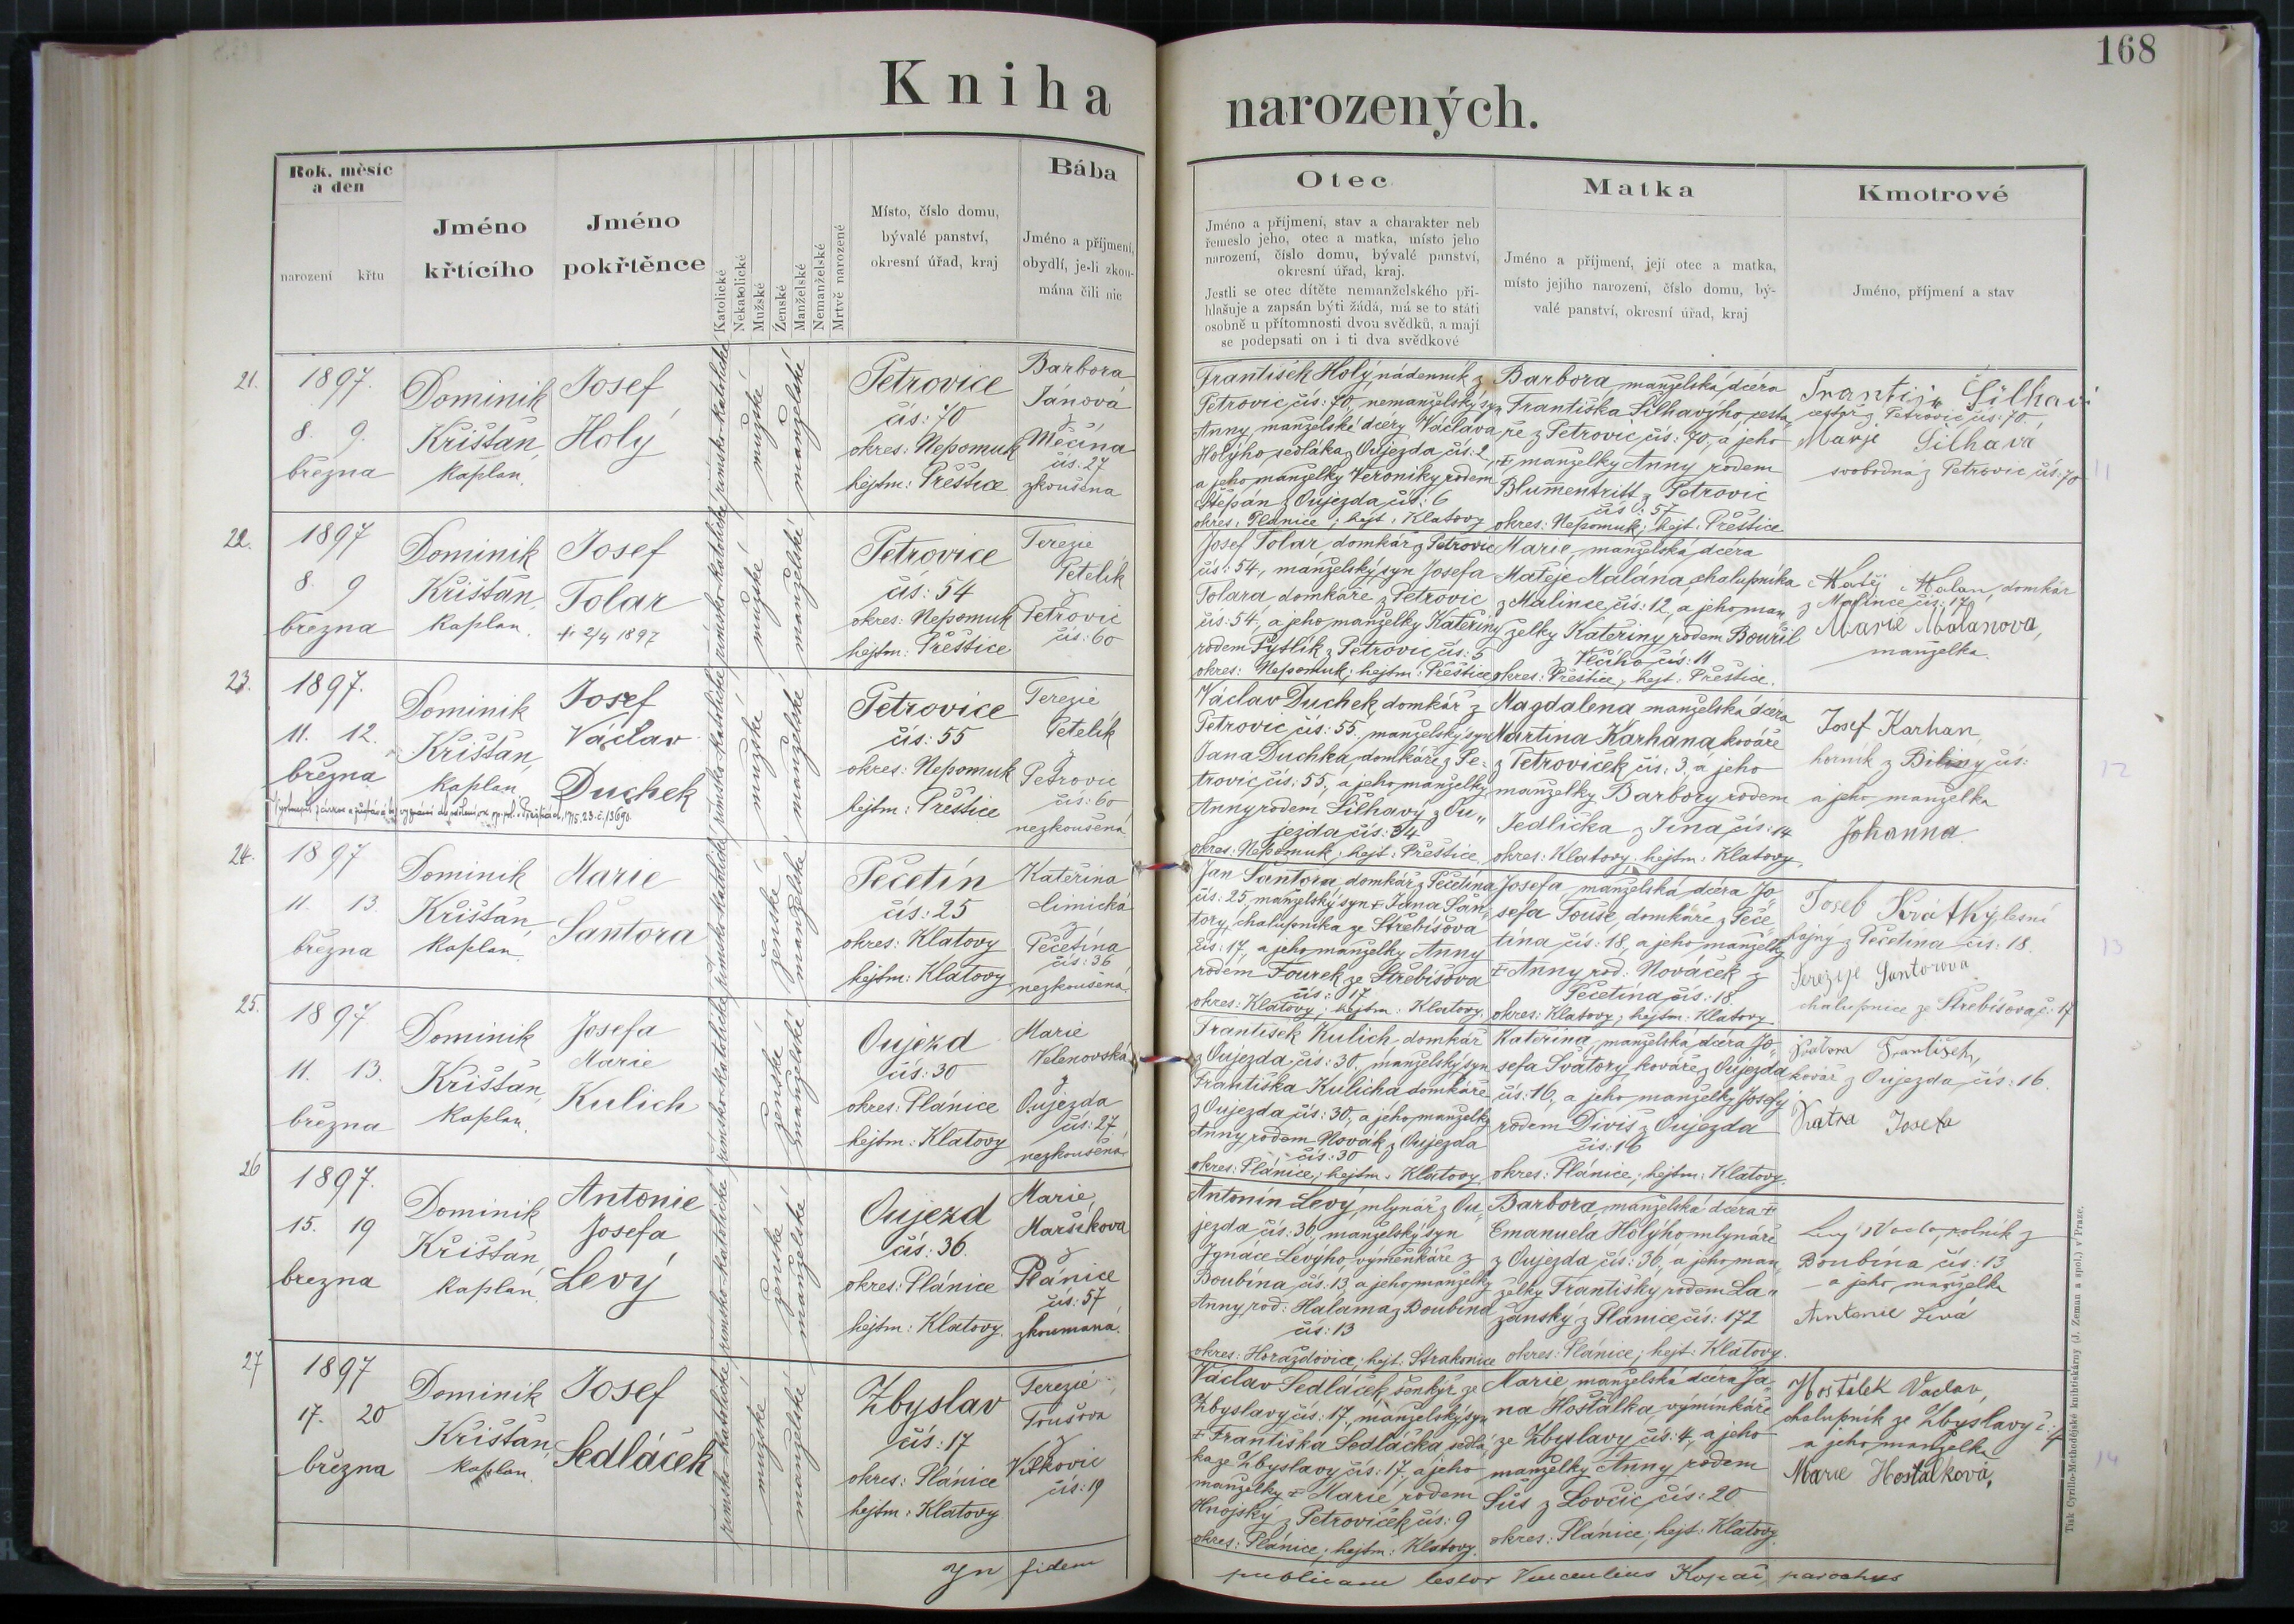 168
Kniha narozených.
Rok, měsíc
a den
narození křtu
Jméno
křtícího
Jméno
pokřtěnce
Katolické
Nekatolické
Mužské
Ženské
Manželské
Nemanželské
Mrtvě narozené
Místo, číslo domu,
bývalé panství,
okresní úřad, kraj
Bába
Jméno a příjmení,
obydlí, je-li zkou-
mána čili nic
Otec
Jméno a přijmení, stav a charakter neb
řemeslo jeho, otec a matka, místo jeho
narození, číslo domu, bývalé panství,
okresní úřad, kraj.
Jestli se otec dítěte nemanželského při-
hlašuje a zapsán býti žádá, má se to státi
osobně u přítomnosti dvou svědků, a mají
se podepsati on i ti dva svědkové
Matka
Jméno a příjmení, její otec a matka,
místo jejího narození, číslo domu, bý-
valé panství, okresní úřad, kraj
Kmotrové
Jméno, příjmení a stav
21.
1897.
8. 9.
března
Dominik
Křišťan,
kaplan.
Josef
Holý
římsko-katolické
mužské
manželské
Petrovice
čís: 70
okres: Nepomuk
hejtm: Přeštice
Barbora
Jánová
z
Měčína
čís: 27
zkoušena
František Holý, nádenník z
Petrovic čís: 70, nemanželský syn
Anny, manželské dcéry Václava
Holýho sedláka z Oujezda čís: 2,
a jeho manželky Veroniky rodem
Štěpán z Oujezda čís: 6
okres: Plánice; hejt: Klatovy
Barbora manželská dcéra
Františka Šilhavýho, cesta
ře z Petrovic čís: 70, a jeho
+ manželky Anny rodem
Blumentritt z Petrovic
čís: 57
okres: Nepomuk; hejt: Přeštice
Šilhavi
cestář z Petrovic čís: 70.
Marje Šilhavá
svobodná z Petrovic čís: 70
11
22.
1897
8. 9
března
Dominik
Křišťan,
kaplan.
Josef
Tolar
+ 2/4 1897
římsko-katolické
mužské
manželské
Petrovice
čís: 54
okres: Nepomuk
hejtm: Přeštice
Terezie
Petelík
z
Petrovic
čís: 60
Josef Tolar domkář z Petrovic
čís: 54, manželský syn Josefa
Tolara domkáře z Petrovic
čís: 54, a jeho manželky Kateřiny
rodem Pytlík z Petrovic čís: 5
okres: Nepomuk; hejtm: Přeštice
Marie, manželská dcéra
Matěje Malána, chalupníka
z Malince čís: 12, a jeho man„
želky Kateřiny rodem Bouřil
z Vlčího čís: 11
okres: Přeštice, hejt: Přeštice.
Matěj Malan, domkár
z Malince čís: 17
Marie Malanova,
manželka.
23.
1897.
11. 12.
března
Dominik
Křišťan,
kaplan
Josef
Václav
Duchek
římsko-katolické
mužské
manželské
Petrovice
čís: 55
okres: Nepomuk
hejtm: Přeštice
Terezie
Petelík
z
Petrovic
čís: 60
nezkoušená
Václav Duchek, domkář z
Petrovic čís: 55, manželský syn
Jana Duchka, domkáře z Pe-
trovic čís: 55, a jeho manželky
Anny rodem Šilhavý z Ou„
jezda čís: 34
okres: Nepomuk; hejt: Přeštice
Magdalena manželská dcéra
Martina Karhana kováře
z Petroviček čís: 3, a jeho
manželky Barbory rodem
Jedlička z Jina čís: 14
okres: Klatovy, hejtm: Klatovy,
Josef Karhan,
horník z Biliny čís:
a jeho manželka
Johanna
12
24.
1897
11. 13
března
Dominik
Křišťan
kaplan,
Marie
Šantora
římsko-katolické
ženské
manželské
Pečetín
čís: 25
okres: Klatovy
hejtm: Klatovy
Kateřina
z
Pečetína
čís: 36
nezkoušená
Jan Šantora domkář z Pečetína
čís: 25, manželský syn + Jana Šan„
tory, chalupníka ze Střebišova
čís: 17, a jeho manželky Anny
rodem Fourek ze Střebišova
čís: 17
okres: Klatovy; hejtm: Klatovy
Josefa manželská dcéra Jo„
sefa Touše, domkáře z Peče„
tína čís: 18, a jeho manželky
+ Anny rod: Nováček z
Pečetína čís: 18.
okres: Klatovy; hejtm: Klatovy
Josef Krátký lesní
hajný z Pečetína čís: 18.
Terezije Santorova
chalupnice ze Střebišova č: 17
13
25.
1897
11. 13.
března
Dominik
Křišťan
kaplan,
Josefa
Marie
Kulich
římsko-katolické
ženské
manželské
Oujezd
čís: 30
okres: Plánice
hejtm: Klatovy
Marie
Velenovská
z
Oujezda
čís: 27
nezkoušená
František Kulich, domkář
z Oujezda čís: 30, manželský syn
Františka Kulicha domkáře
z Oujezda čís: 30, a jeho manželky
Anny rodem Novák z Oujezda
čís: 30
okres: Plánice; hejtm: Klatovy
Kateřina, manželská dcéra Jo„
sefa Svátory, kováře z Oujezda
čís: 16, a jeho manželky Josefy
rodem Diviš z Oujezda
čís: 16
okres: Plánice, hejtm: Klatovy.
František,
kovář z Oujezda čís: 16.
Josefa
26
1897.
15. 19
března
Dominik
Křišťan,
kaplan
Antonie
Josefa
Levý
římsko-katolické
ženské
manželské
Oujezd
čís: 36.
okres: Plánice
hejtm: Klatovy.
Marie,
Maršíkova
z
Plánice
čís: 57
zkoumaná.
Antonín Levý, mlynář z Ou„
jezda čís: 36, manželský syn
Ignáce Levýho, výměnkáře z
Boubína čís: 13, a jeho manželky
Anny, rod: Halama z Boubína
čís: 13
okres: Horažďovice; hejt: Strakonice
Barbora, manželská dcéra +
Emanuela Holýho mlynáře
z Oujezda čís: 36, a jeho man„
želky Františky rodem La„
žanský z Plánice čís: 172
okres: Plánice; hejt: Klatovy.
rolník z
Boubína čís: 13
a jeho manželka
Antonie Levá
27
1897
17. 20
března
Dominik
Křišťan,
kaplan.
Josef
Sedláček
římsko-katolické
mužské
manželské
Zbyslav
čís: 17
okres: Plánice
hejtm: Klatovy
Terezie
Toušova
z
Vítkovic
čís: 19
Václav Sedláček, šenkýř ze
Zbyslavy čís: 17, manželský syn
+ Františka Sedláčka, sedlá„
ka ze Zbyslavy čís: 17, a jeho
manželky + Marie rodem
Hnojský z Petroviček čís: 9
okres: Plánice; hejtm: Klatovy.
Marie manželská dcéra Ja„
na Hošťálka, výminkáře
ze Zbyslavy čís: 4, a jeho
manželky Anny rodem
Šůs z Lovčic čís: 20
okres: Plánice; hejt: Klatovy.
Hostálek Vaclav,
chalupník ze Zbyslavy č: 4
a jeho manželka
Marie Hostalková,
14
Yn fidem
publicam testor Kopač, parochus
Tisk Cyrillo-Methodějské knihtiskárny (J. Zeman a spol.) v Praze.